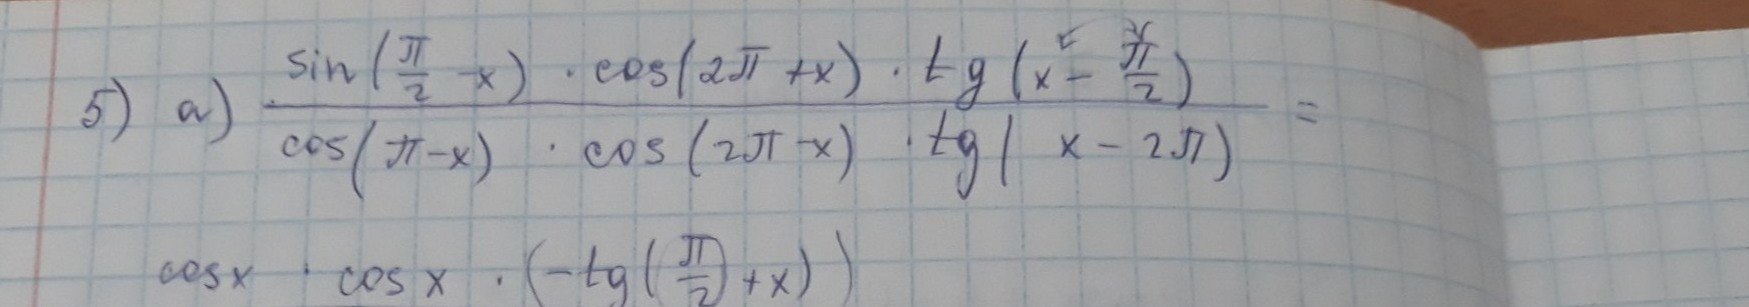 5) а) sin(π/2 -x) · cos(2π +x) · tg(x - π/2)
cos(π-x) · cos(2π-x) · tg( x - 2π) =
cosx · cosx · (-tg(π/2 +x))